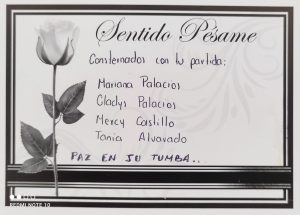 Sentido Pésame
Consternados con tu partida:
Mariana Palacios
Gladys Palacios
Mercy Castillo
Tania Alvarado
PAZ EN SU TUMBA...
REDMI NOTE 10